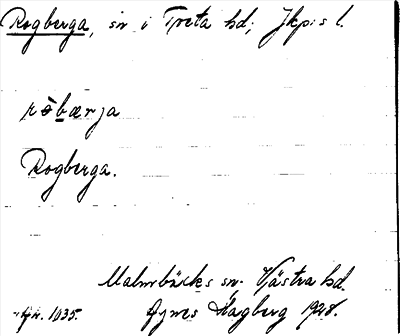 Rogberga, sn i Tveta hd; Jkp:s l.
ròbærja
Rogberga.
Malmbäcks sn. Västra hd.
Agnes Hagberg 1928.
1035.